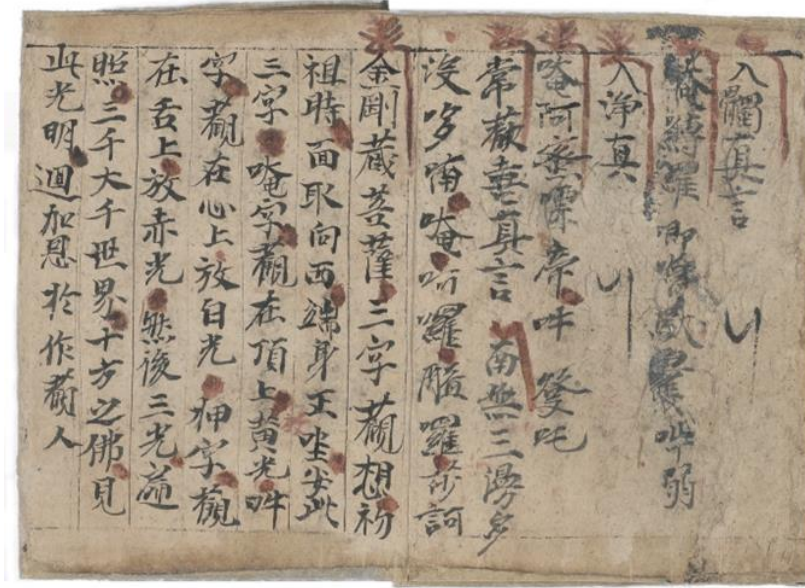 入觸真言
唵縛羅
入淨真
唵阿蜜㗚帝吽發吒
常歡喜真言 南無三湯多
沒多喃唵阿囉𦡀羅莎訶
金剛藏菩薩三字觀想初
祖時面取向西端身正坐安此
三字 唵字觀在頂上黃光吽
字觀在心上放白光 𤙖字觀
在舌上放赤光 然後三光遍
照三千大千世界十方之佛見
此光明迴加恩於作觀人